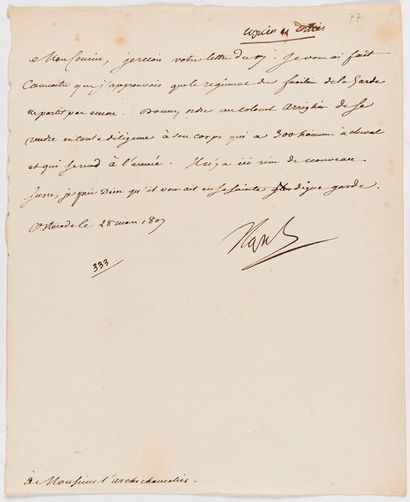 copier en entier
77
Mon Cousin, je reçois votre lettre du 19. Je vous ai fait
connaitre que j'approuvais que le régiment de fusiliers de la Garde
ne partit pas encore. Donnez ordre au colonel Arrighi de se
rendre en toute diligence à son corps qui a 300 hommes à cheval
et qui se rend à l'armée. Il n'y a ici rien de nouveau.
Sur ce, je prie Dieu qu'il vous ait en sa sainte et digne garde.
Osterode le 28 mars 1807
Nap
333
à Monsieur l'archichancelier.